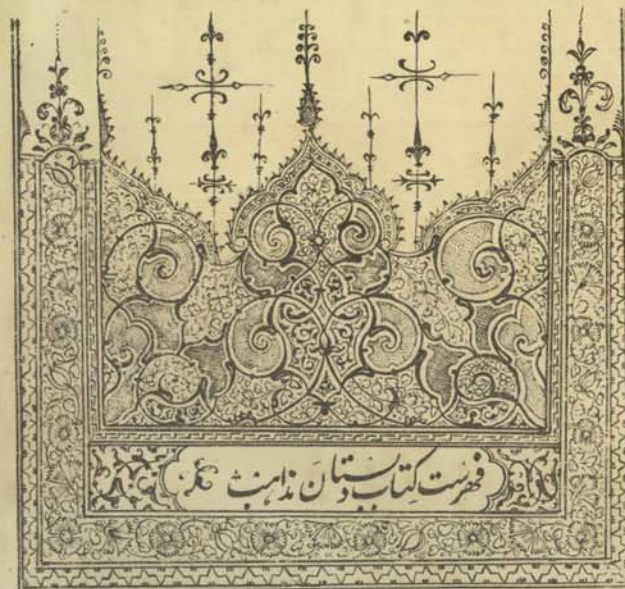 فهرست کتاب دبستان مذاهب